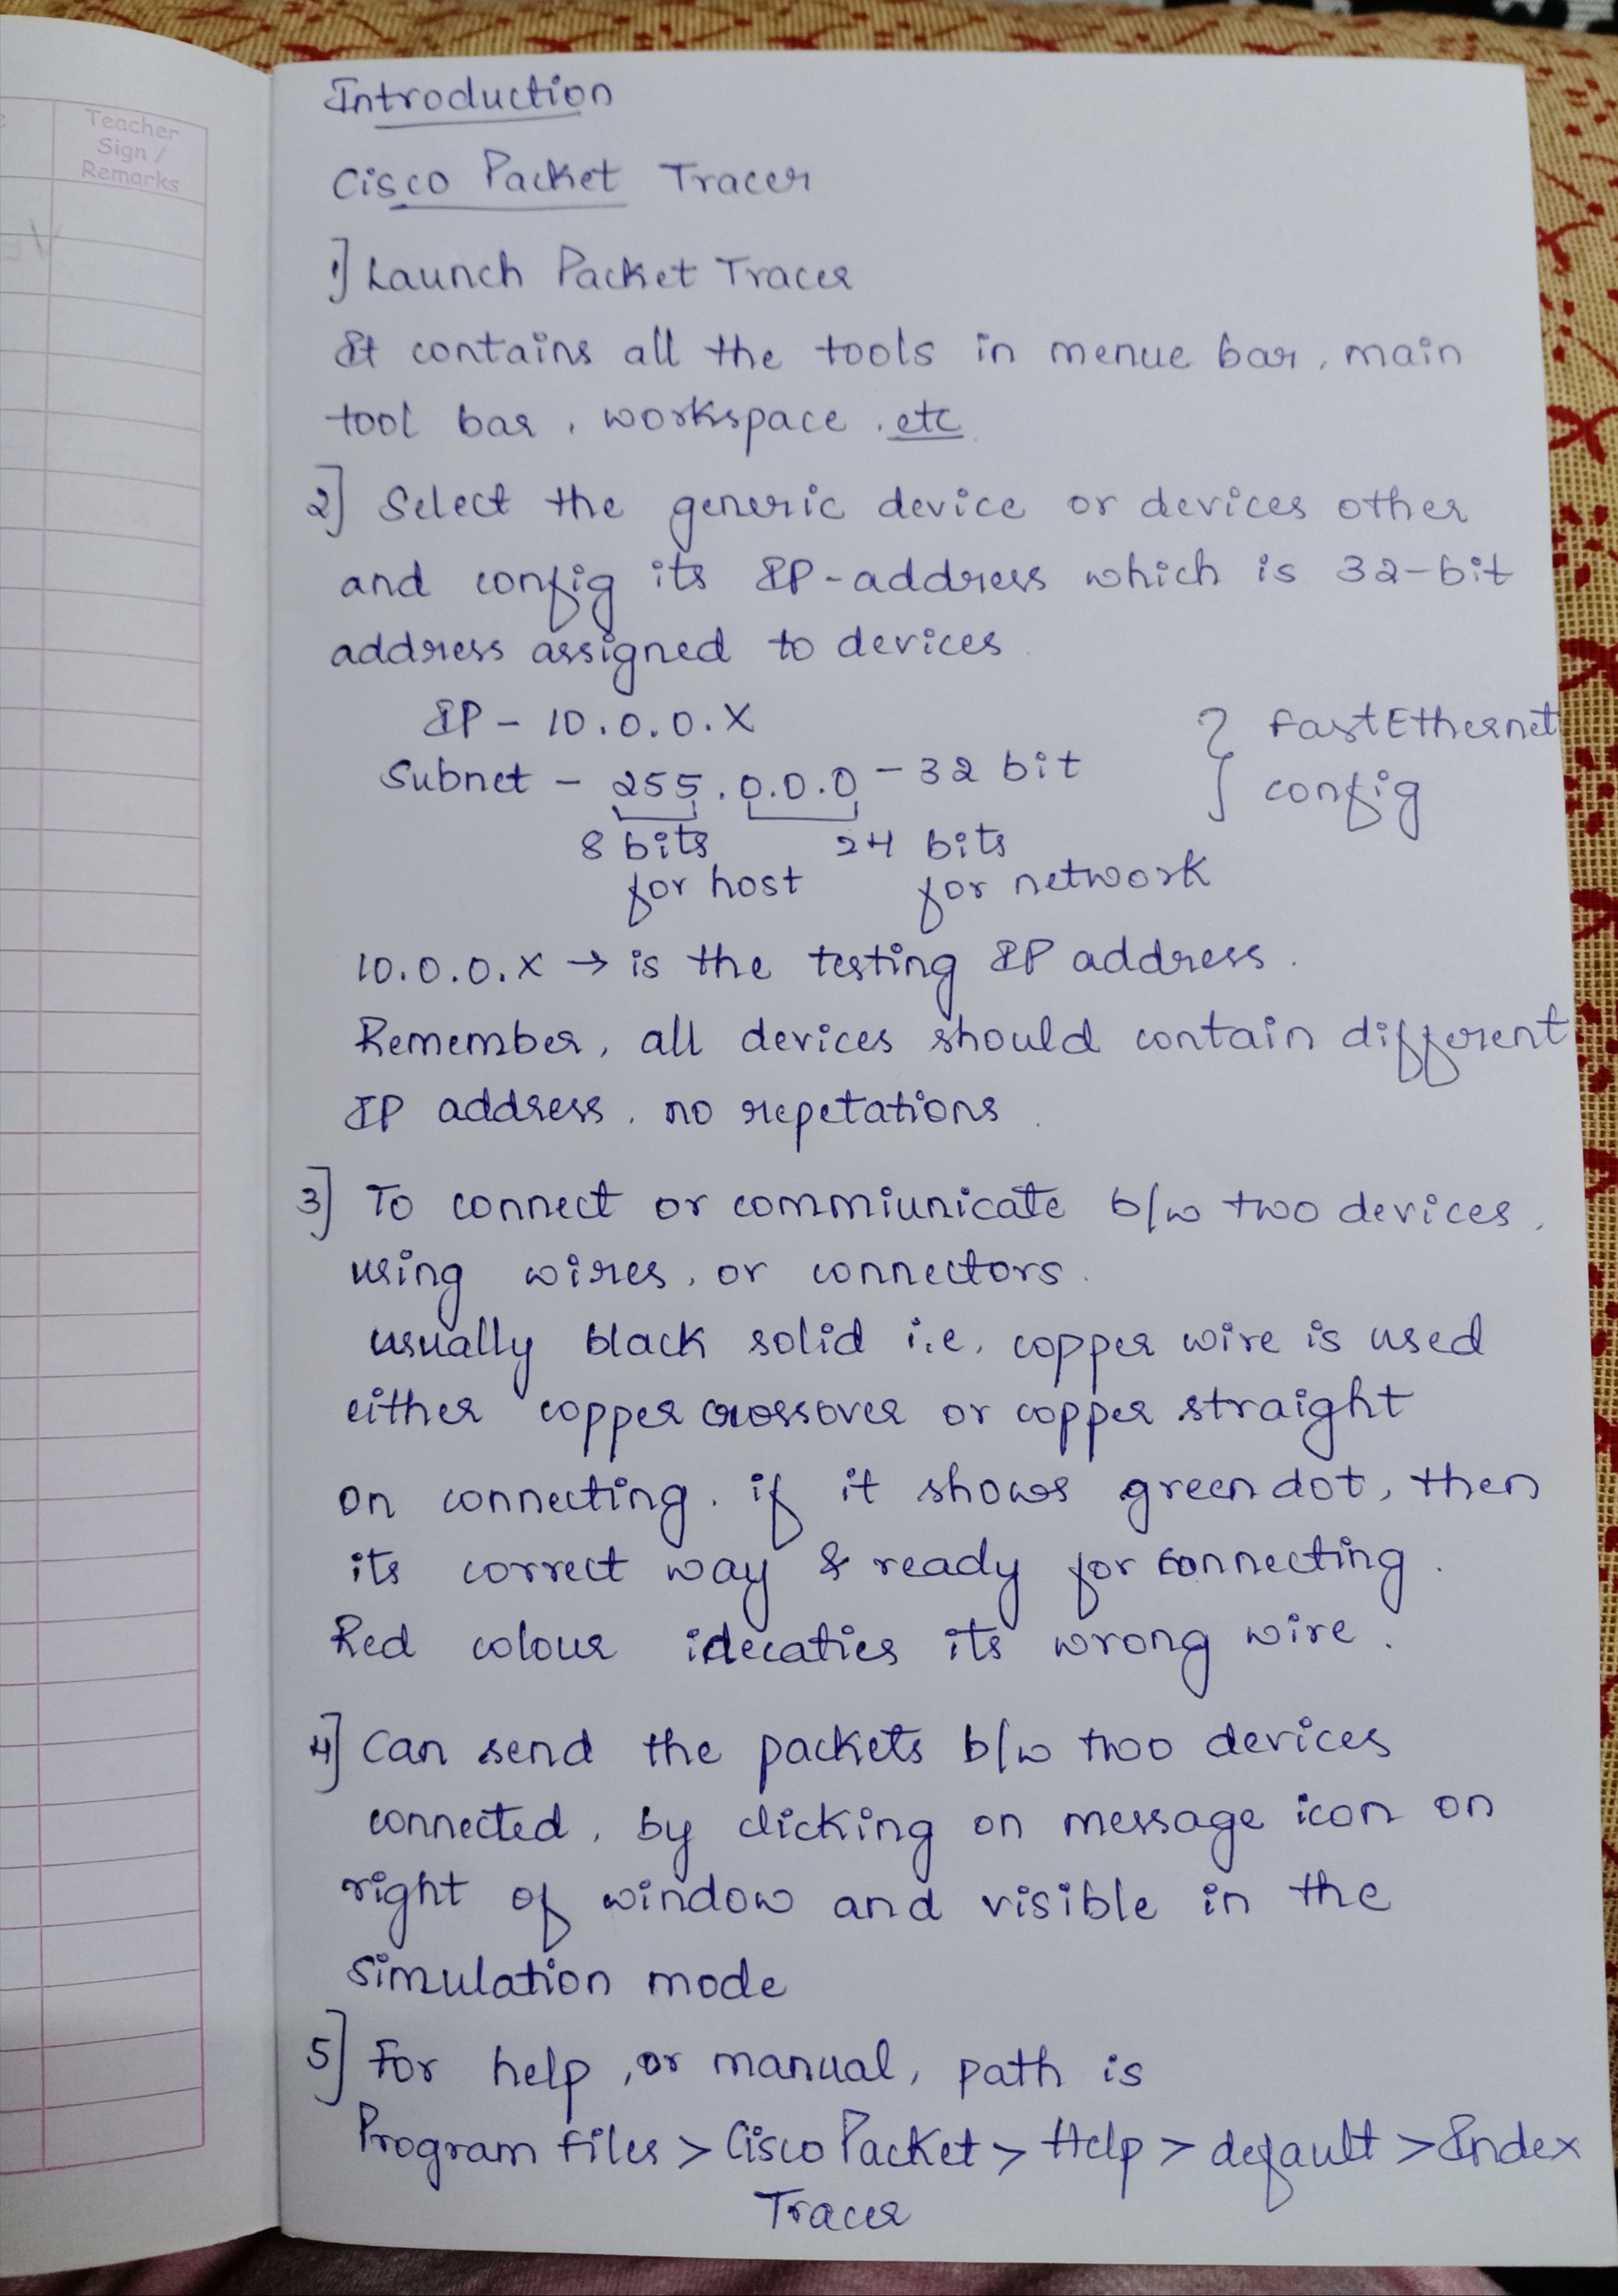 Teacher
Sign /
Remarks
Introduction
Cisco Packet Tracer
1] Launch Packet Tracer
It contains all the tools in menue bar, main
tool bar, workspace, etc
2] Select the generic device or devices other
and config its IP-address which is 32-bit
address assigned to devices.
IP - 10.0.0.X
Subnet - 255.0.0.0 - 32 bit
} FastEthernet
config
8 bits 24 bits
for host for network
10.0.0.X → is the testing IP address.
Remember, all devices should contain different
IP address, no repetations.
3] To connect or commiunicate b/w two devices,
using wires, or connectors.
usually black solid i.e, copper wire is used
either copper crossover or copper straight
on connecting, if it shows green dot, then
its correct way & ready for connecting.
Red colour idecaties its wrong wire.
4] Can send the packets b/w two devices
connected, by clicking on message icon on
right of window and visible in the
simulation mode
5] For help, or manual, path is
Program files > Cisco Packet > Help > default > Index
Tracer